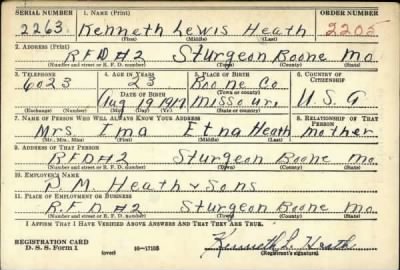 SERIAL NUMBER 1. NAME (Print) ORDER NUMBER
2263 Kenneth Lewis Heath 2205
(First) (Middle) (Last)
2. ADDRESS (Print)
RFD#2 Sturgeon Boone Mo.
(Number and street or R. F. D. number) (Town) (County) (State)
3. TELEPHONE 4. AGE IN YEARS 5. PLACE OF BIRTH 6. COUNTRY OF CITIZENSHIP
6023 23 Boone Co.
DATE OF BIRTH (Town or county)
Aug 19 1917 Missouri U.S.A
(Exchange) (Number) (Mo.) (Day) (Yr.) (State or country)
7. NAME OF PERSON WHO WILL ALWAYS KNOW YOUR ADDRESS 8. RELATIONSHIP OF THAT PERSON
Mrs. Ima Etna Heath mother
(Mr., Mrs., Miss) (First) (Middle) (Last)
9. ADDRESS OF THAT PERSON
RFD#2 Sturgeon Boone Mo.
(Number and street or R. F. D. number) (Town) (County) (State)
10. EMPLOYER'S NAME
Heath & Sons
11. PLACE OF EMPLOYMENT OR BUSINESS
R.F.D #2 Sturgeon Boone Mo.
(Number and street or R. F. D. number) (Town) (County) (State)
I AFFIRM THAT I HAVE VERIFIED ABOVE ANSWERS AND THAT THEY ARE TRUE.
REGISTRATION CARD
D. S. S. Form 1 (over) 16-17105 Kenneth L. Heath
(Registrant's signature)